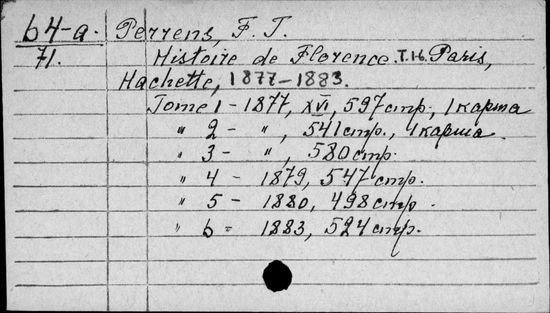 64-a. Perrens, F. T.
71. Histoire de Florence. T.1-6. Paris,
Hachette, 1877-1883.
Tome 1 - 1877, XVI, 597 стр., 1 карта
" 2 - ", 541 стр., 1 карта.
" 3 - ", 580 стр.
" 4 - 1879, 547 стр.
" 5 - 1880, 498 стр.
" 6 - 1883, 524 стр.